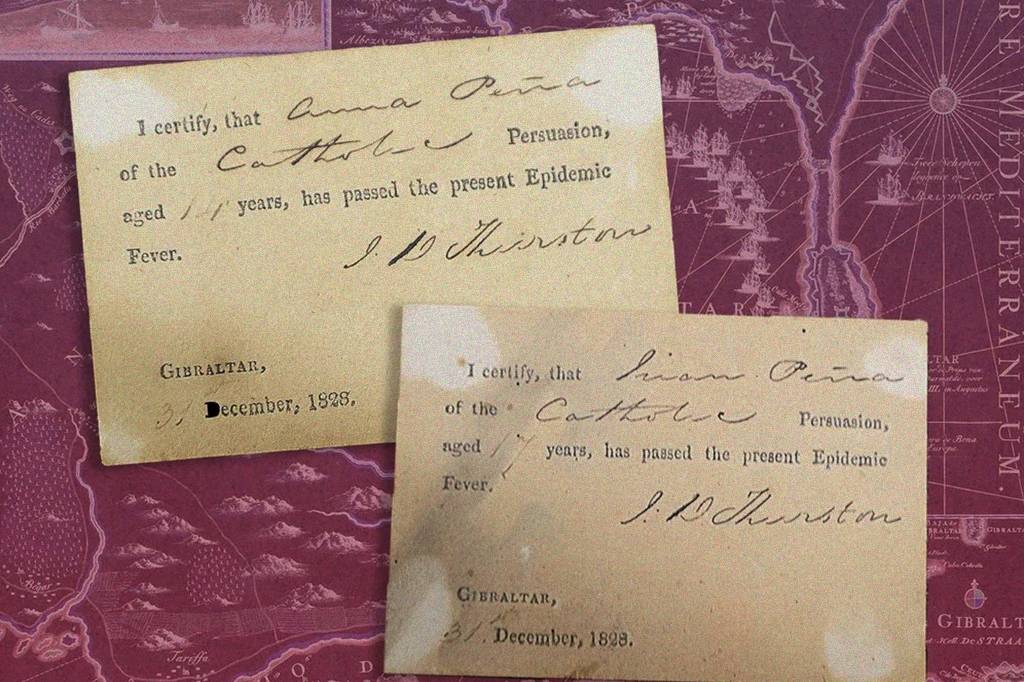 I certify, that Anna Peña
of the Catholic Persuasion,
aged 14 years, has passed the present Epidemic
Fever. J. D Thurston
GIBRALTAR,
31 December, 1828.
I certify, that Juan Peña
of the Catholic Persuasion,
aged 17 years, has passed the present Epidemic
Fever.
J. D Thurston
GIBRALTAR,
31st December, 1828.
RE MEDITERRANEUM.
Tariffa
GIBRALT